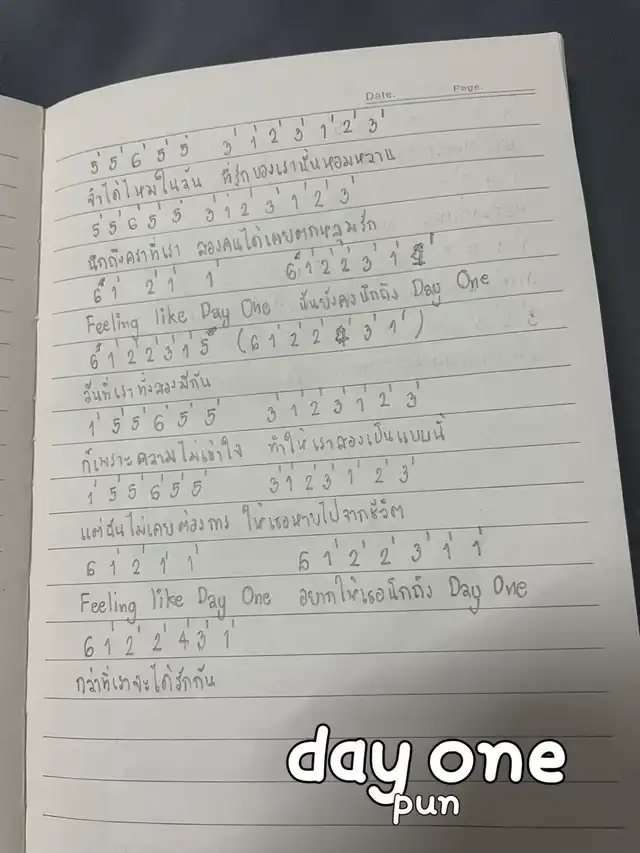 Date. Page.
5' 5' 6' 5' 5' 3' 1' 2' 3' 1' 2' 3'
จำได้ไหมในวัน ที่รักของเรานั้นหอมหวาน
5' 5' 6' 5' 5' 3' 1' 2' 3' 1' 2' 3'
นึกถึงคราที่เรา สองคนได้เคยตกหลุมรัก
6 1' 2' 1' 1' 6 1' 2' 2' 3' 1' 1'
Feeling like Day One ฉันยังคงนึกถึง Day One
6 1' 2' 2' 3' 1' 5' (6 1' 2' 2' 4' 3' 1')
วันที่เราทั้งสองมีกัน
1' 5' 5' 6' 5' 5' 3' 1' 2' 3' 1' 2' 3'
ก็เพราะความไม่เข้าใจ ทำให้เราสองเป็นแบบนี้
1' 5' 5' 6' 5' 5' 3' 1' 2' 3' 1' 2' 3'
แต่ฉันไม่เคยต้องการ ให้เธอหายไปจากชีวิต
6 1' 2' 1' 1' 6 1' 2' 2' 3' 1' 1'
Feeling like Day One อยากให้เธอนึกถึง Day One
6 1' 2' 2' 4' 3' 1'
กว่าที่เราจะได้รักกัน
day one
pun